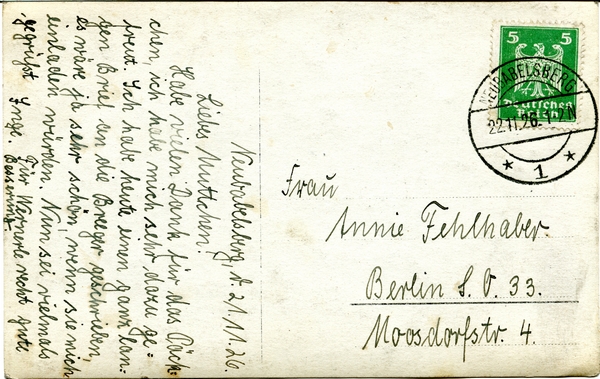 Neubabelsberg d. 21.11.26.
Liebes Muttchen!
Habe vielen Dank für das Päck-
chen, ich habe mich sehr dazu ge-
freut. Ich habe heute einen ganz lan-
gen Brief an die Breeger geschrieben,
es wäre ja sehr schön, wenn sie mich
einladen würden. Nun sei vielmals
gegrüßt Inge.
Für Wernerle recht gute
Besserung
5 5
Deutsches
Reich
NEUBABELSBERG
22.11.26. 1-7 N
* 1 *
Frau
Annie Fehlhaber.
Berlin S. O. 33.
Moosdorfstr. 4.